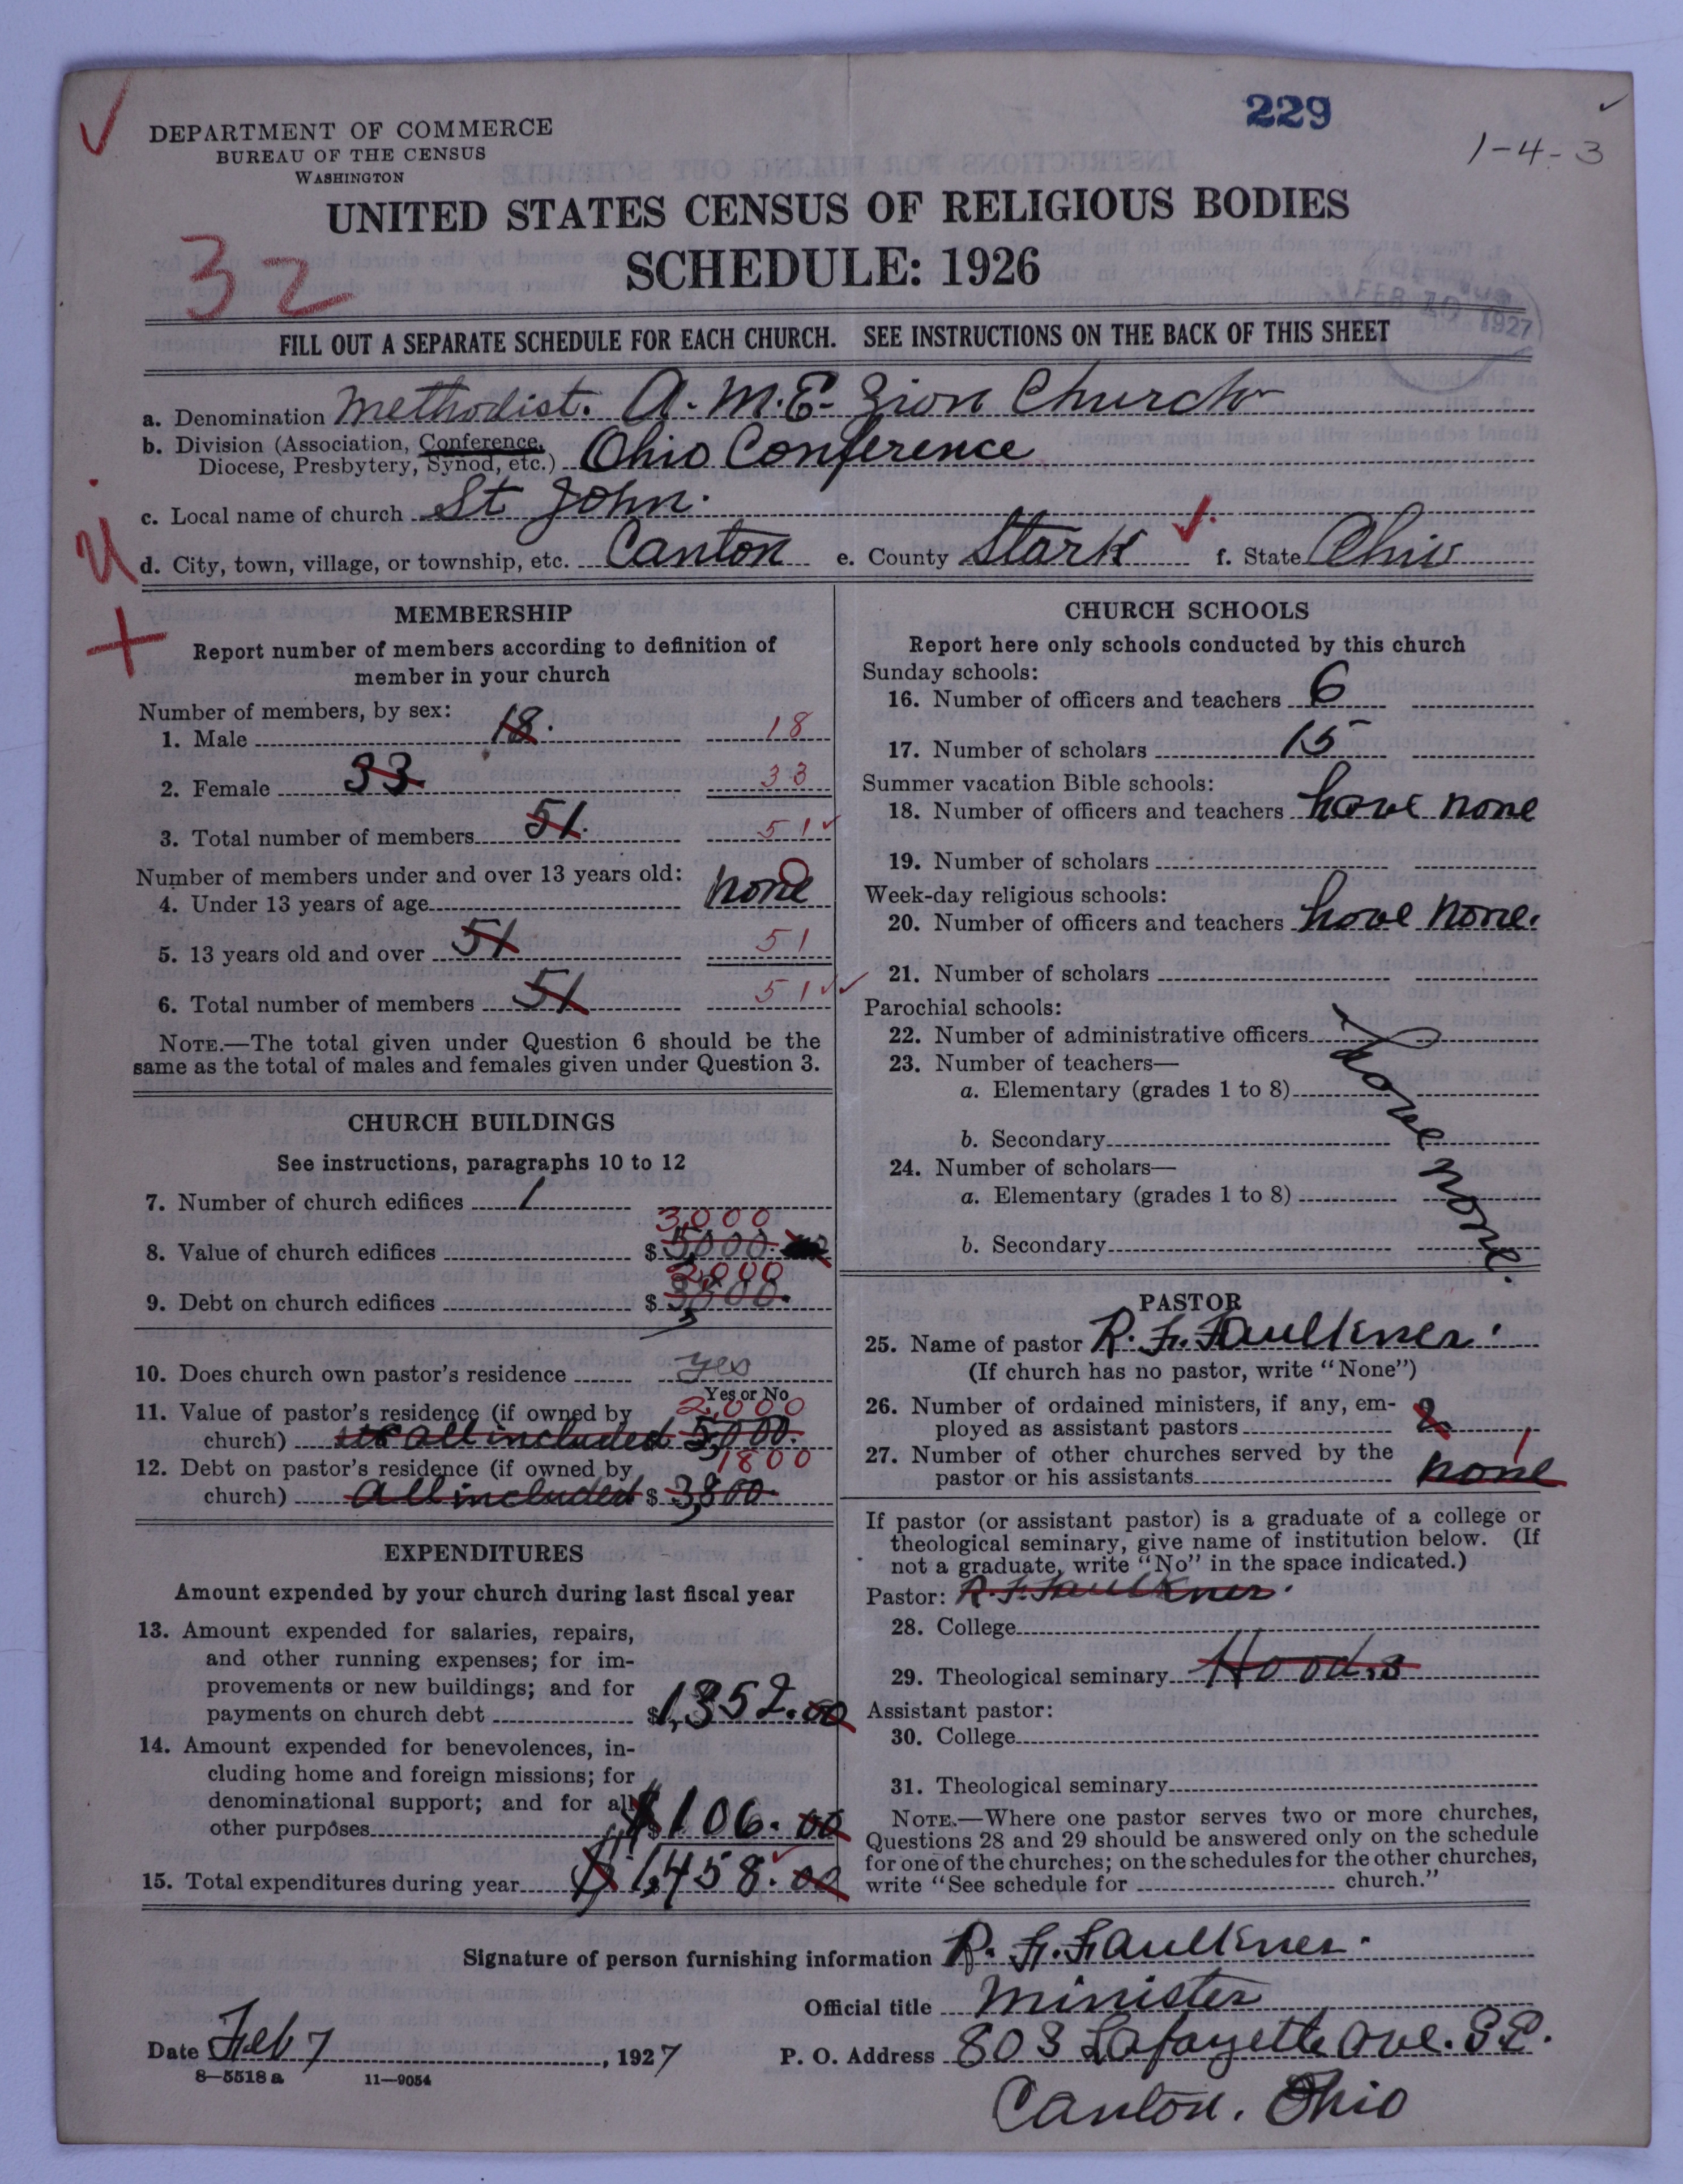 229
1-4-3
DEPARTMENT OF COMMERCE
BUREAU OF THE CENSUS
WASHINGTON
UNITED STATES CENSUS OF RELIGIOUS BODIES
SCHEDULE: 1926
32
FEB 10 1927
FILL OUT A SEPARATE SCHEDULE FOR EACH CHURCH. SEE INSTRUCTIONS ON THE BACK OF THIS SHEET
a. Denomination Methodist. A.M.E. Zion Church
b. Division (Association, Conference,
Diocese, Presbytery, Synod, etc.) Ohio Conference
c. Local name of church St John.
d. City, town, village, or township, etc. Canton e. County Stark f. State Ohio
MEMBERSHIP
Report number of members according to definition of
member in your church
Number of members, by sex:
1. Male 18. 18
2. Female 33 33
3. Total number of members 51. 51
Number of members under and over 13 years old:
4. Under 13 years of age none 0
5. 13 years old and over 51 51
6. Total number of members 51 51
NOTE.—The total given under Question 6 should be the
same as the total of males and females given under Question 3.
CHURCH BUILDINGS
See instructions, paragraphs 10 to 12
7. Number of church edifices 1
3,000
8. Value of church edifices $ 5,000.
2,000
9. Debt on church edifices $
10. Does church own pastor's residence yes
Yes or No
2,000
11. Value of pastor's residence (if owned by
church) all included 5,000.
1800
12. Debt on pastor's residence (if owned by
church) all included $ 3,800
EXPENDITURES
Amount expended by your church during last fiscal year
13. Amount expended for salaries, repairs,
and other running expenses; for im-
provements or new buildings; and for
payments on church debt $ 1,352.00
14. Amount expended for benevolences, in-
cluding home and foreign missions; for
denominational support; and for all
other purposes $106.00
15. Total expenditures during year $1,458.00
CHURCH SCHOOLS
Report here only schools conducted by this church
Sunday schools:
16. Number of officers and teachers 6
17. Number of scholars 15
Summer vacation Bible schools:
18. Number of officers and teachers have none
19. Number of scholars
Week-day religious schools:
20. Number of officers and teachers have none.
21. Number of scholars
Parochial schools:
22. Number of administrative officers
23. Number of teachers—
a. Elementary (grades 1 to 8)
b. Secondary
24. Number of scholars—
a. Elementary (grades 1 to 8)
b. Secondary
have none.
PASTOR
25. Name of pastor R. F. Faulkner.
(If church has no pastor, write "None")
26. Number of ordained ministers, if any, em-
ployed as assistant pastors 2
27. Number of other churches served by the 1
pastor or his assistants none
If pastor (or assistant pastor) is a graduate of a college or
theological seminary, give name of institution below. (If
not a graduate, write "No" in the space indicated.)
Pastor: R. F. Faulkner.
28. College
29. Theological seminary Hoods
Assistant pastor:
30. College
31. Theological seminary
NOTE.—Where one pastor serves two or more churches,
Questions 28 and 29 should be answered only on the schedule
for one of the churches; on the schedules for the other churches,
write "See schedule for church."
Signature of person furnishing information R. F. Faulkner.
Official title Minister
Date Feb 7, 1927 P. O. Address 803 Lafayette Ave. S.E.
8—5518 a 11—9054
Canton, Ohio